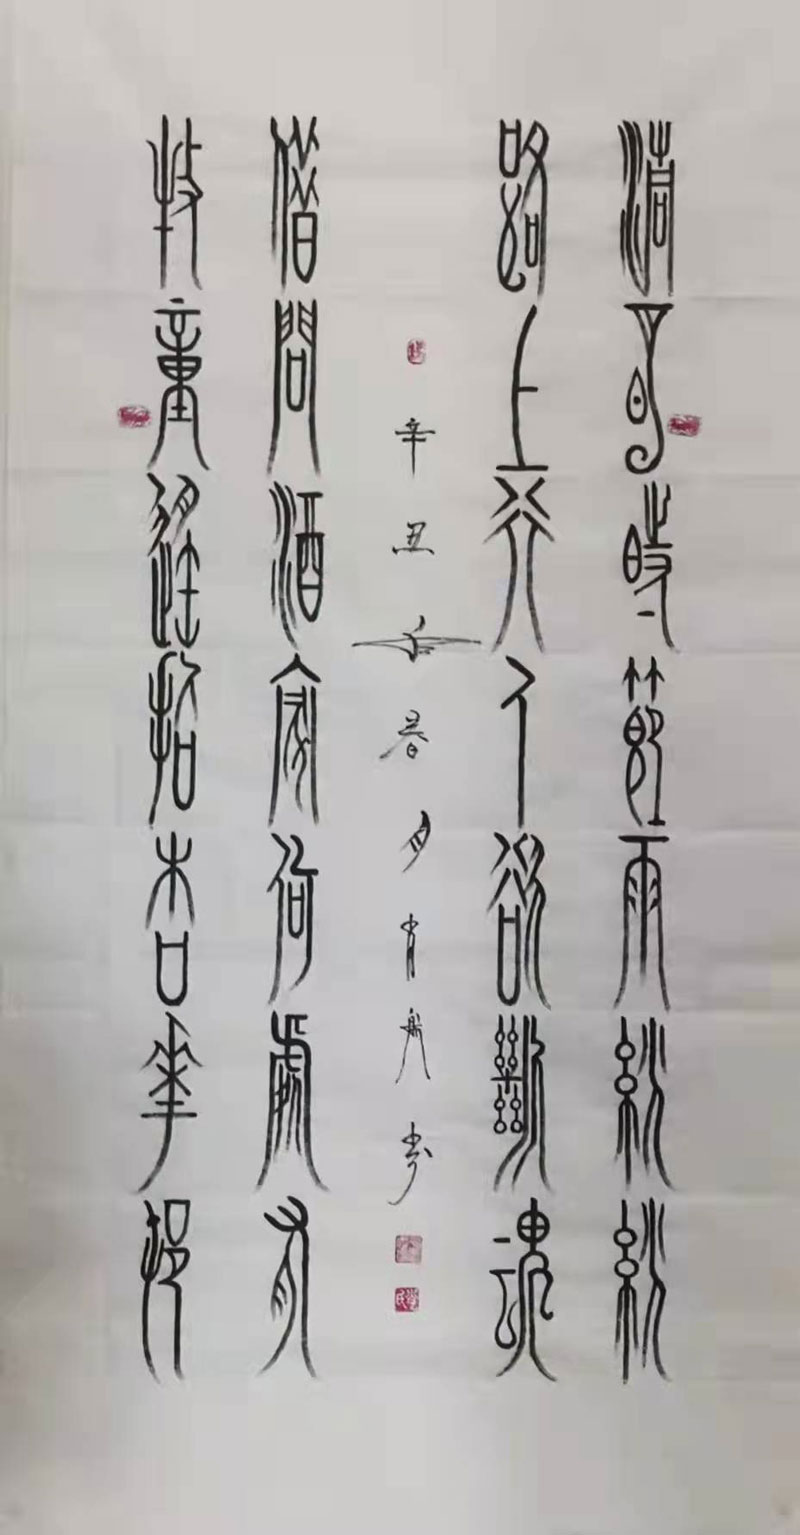 清明時節雨紛紛
路上行人欲斷魂
辛丑年春月肖船書
借問酒家何處有
牧童遙指杏華邨